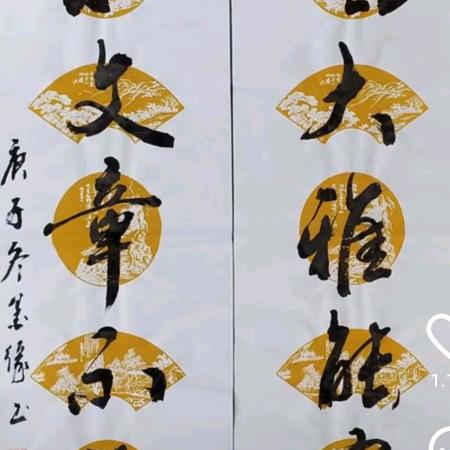 大雅能
文章不
庚子冬墨缘书